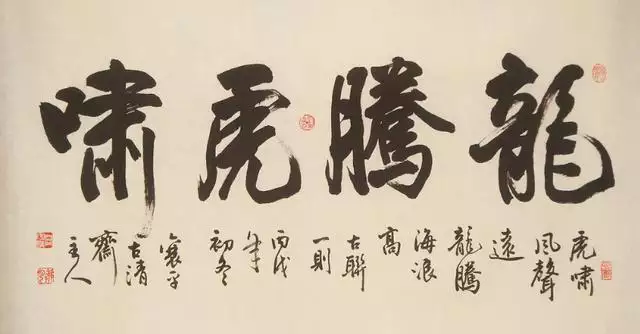 龍騰虎嘯
虎嘯
風聲
遠
龍騰
海浪
高
古聯
一則
丙戌
年
初冬
古清
齋
主人